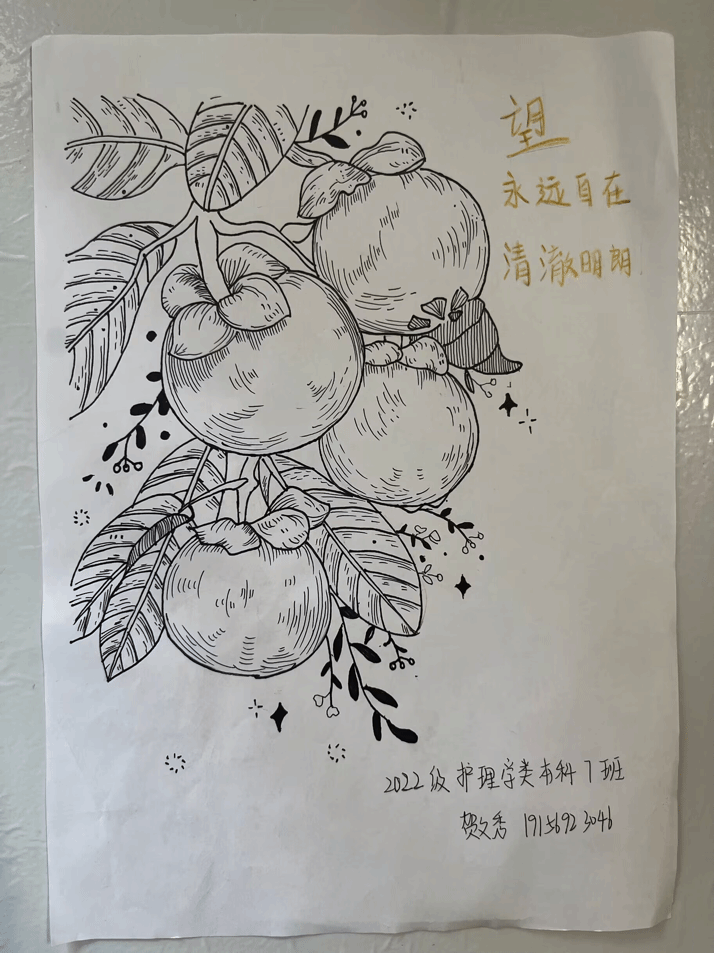 望
永远自在
清澈明朗.
2022级护理学类本科7班
贺文秀 19156923046